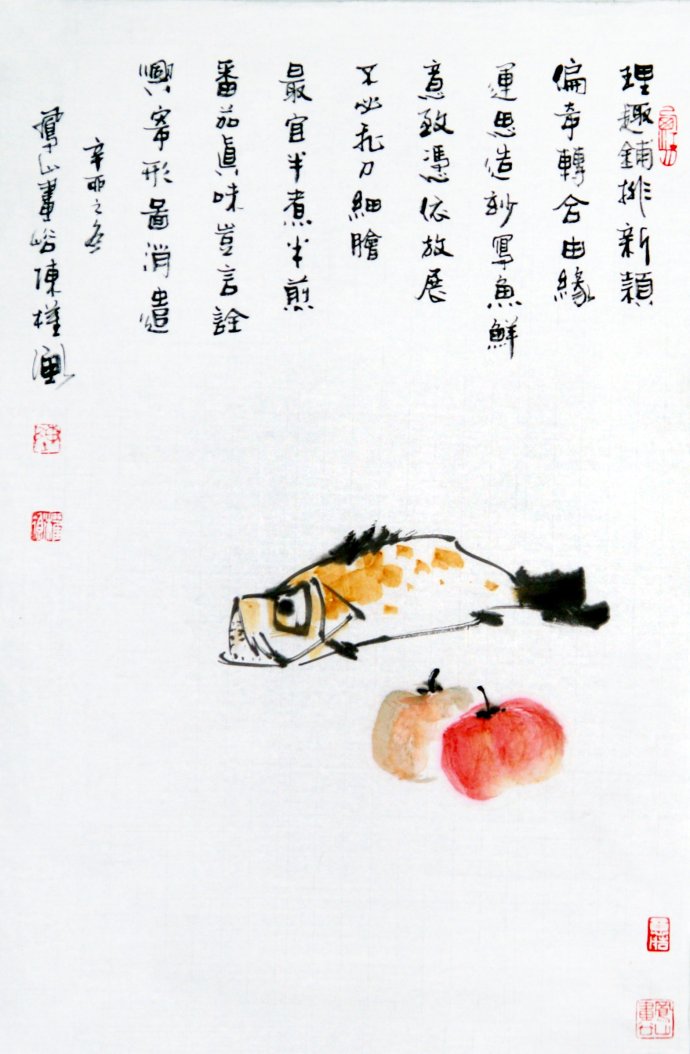 理趣鋪排新穎
偏幸轉合由緣
運思造妙寫魚鮮
意致憑依放展
不必飛刀細膾
最宜半煮半煎
番茄真味豈言詮
興寄形圖消遣
辛丑之冬
山畫谷陳